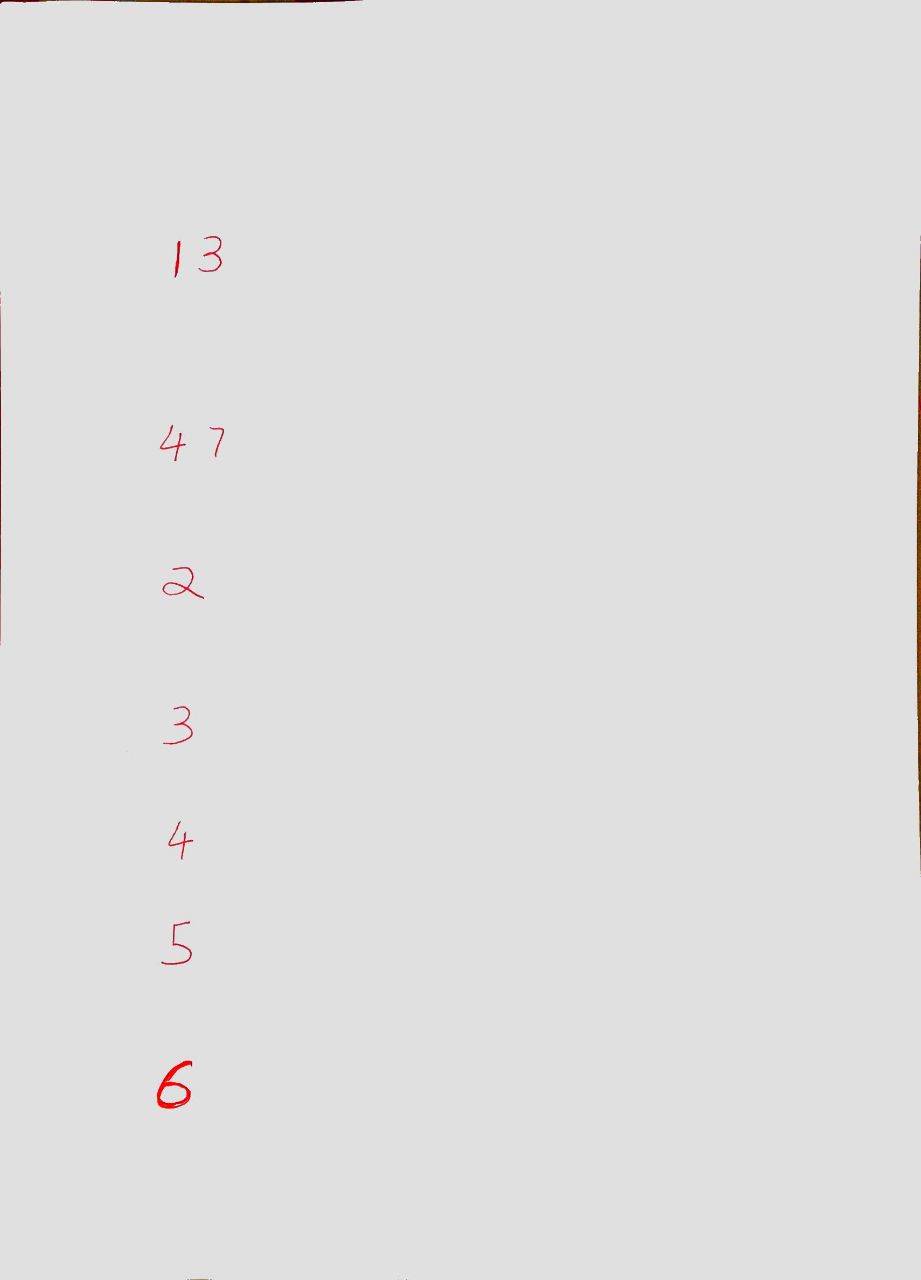 13
47
2
3
4
5
6